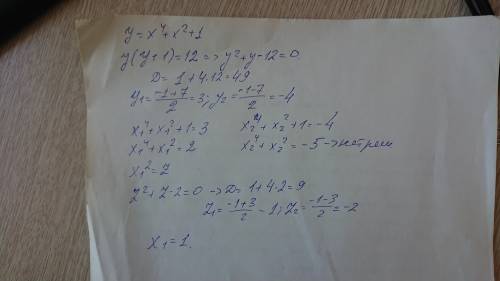 y = x⁴ + x² + 1
y(y+1) = 12 => y² + y - 12 = 0
D = 1 + 4·12 = 49
y₁ = (-1+7)/2 = 3; y₂ = (-1-7)/2 = -4
x₁⁴ + x₁² + 1 = 3 x₂⁴ + x₂² + 1 = -4
x₁⁴ + x₁² = 2 x₂⁴ + x₂² = -5 →
x₁² = Z
Z² + Z - 2 = 0 → D = 1 + 4·2 = 9
Z₁ = (-1+3)/2 - 1; Z₂ = (-1-3)/2 = -2
x₁ = 1.